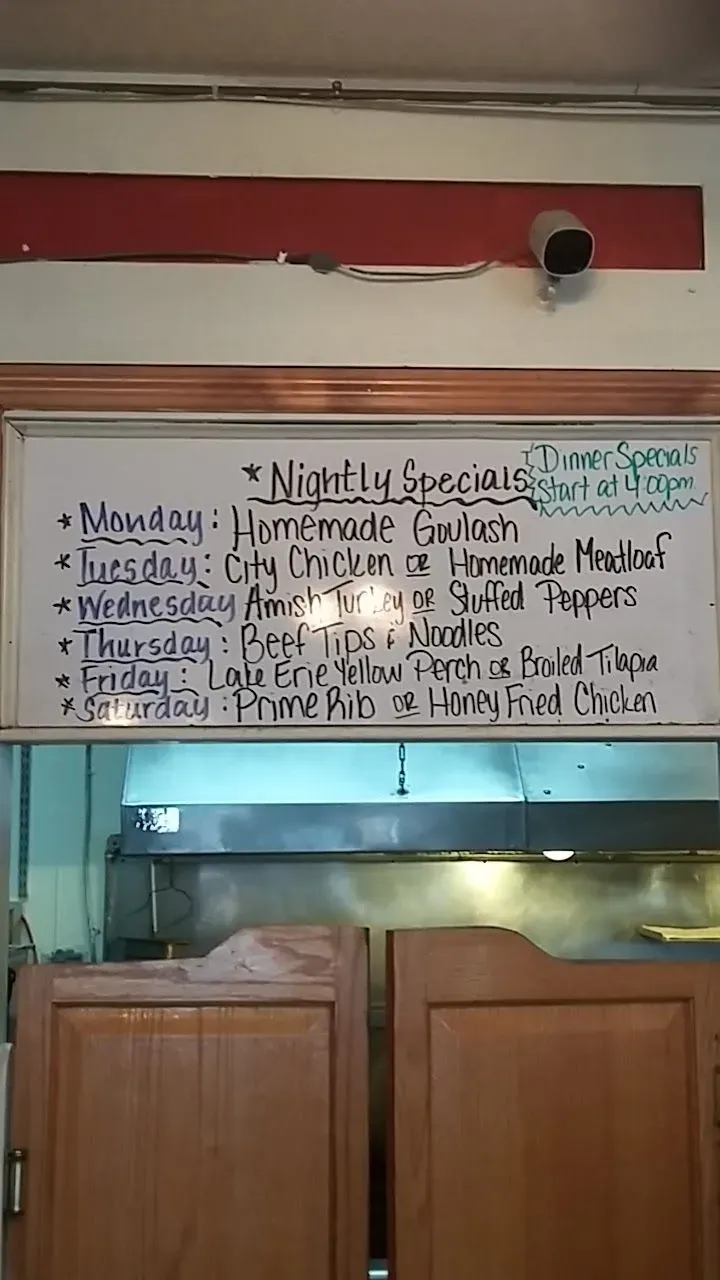 * Nightly Specials
Dinner Specials
Start at 4:00pm
* Monday: Homemade Goulash
* Tuesday: City Chicken OR Homemade Meatloaf
* Wednesday Amish Turkey OR Stuffed Peppers
* Thursday: Beef Tips & Noodles
* Friday: Lake Erie Yellow Perch OR Broiled Tilapia
* Saturday: Prime Rib OR Honey Fried Chicken